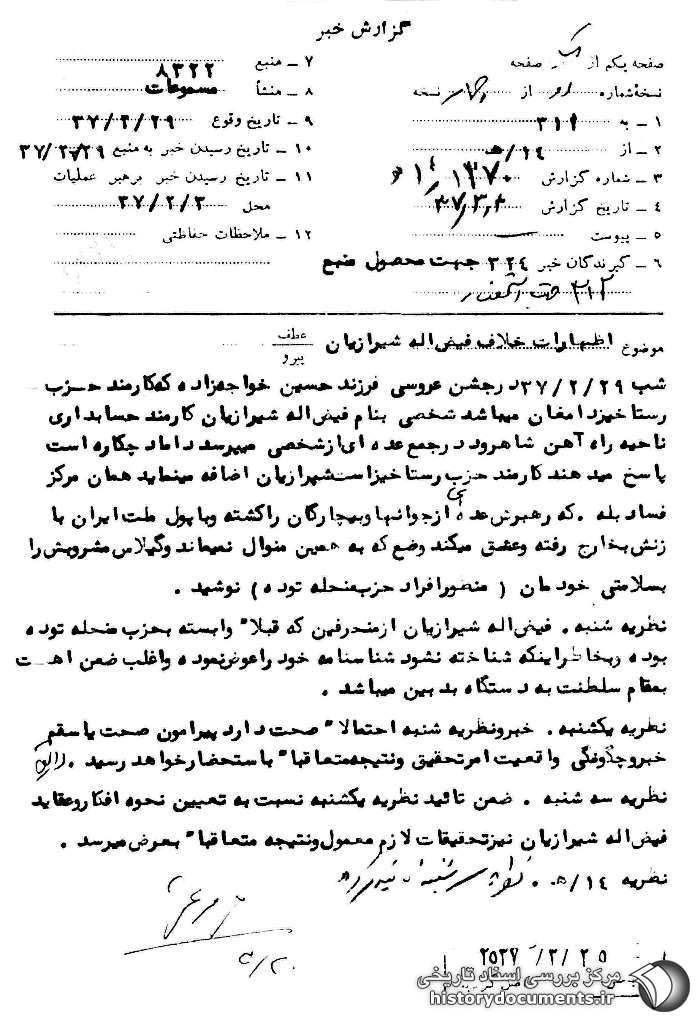 گزارش خبر
صفحه یکم از یک صفحه
نسخهٔ شماره از نسخه
۱ – به ۳۱۲
۲ – از ۱۴/ه
۳ – شماره گزارش ۱۳۷۰/ ۱۴ه
۴ – تاریخ گزارش
۵ – پیوست
۶ – گیرندگان خبر ۳۲۴ جهت محصول منبع
۳۱۲
۷ – منبع ۸۳۲۲
۸ – منشأ مسموعات
۹ – تاریخ وقوع ۳۷/۲/۲۹
۱۰ – تاریخ رسیدن خبر به منبع ۳۷/۲/۲۹
۱۱ – تاریخ رسیدن خبر برهبر عملیات
محل ۳۷/۳/۲
۱۲ – ملاحظات حفاظتی
موضوع اظهارات خلاف فیض اله شیرازیان عطف
پیرو
شب ۳۷/۲/۲۹ در جشن عروسی فرزند حسین خواجه زاده که کارمند حزب
رستاخیز دامغان میباشد شخصی بنام فیض اله شیرازیان کارمند حسابداری
ناحیه راه آهن شاهرود در جمع عده ای از شخصی میپرسد داماد چکاره است
پاسخ میدهند کارمند حزب رستاخیز است شیرازیان اضافه مینماید همان مرکز
فساد بله . که رهبرش عده ای از جوانها و بیچارگان را کشته و با پول ملت ایران با
زنش بخارج رفته و عشق میکند وضع که به همین منوال نمیماند و گیلاس مشروبش را
بسلامتی خودمان ( منظور افراد حزب منحله توده ) نوشید .
نظریه شنبه . فیض اله شیرازیان از منحرفین که قبلاً وابسته بحزب منحله توده
بوده و بخاطر اینکه شناخته نشود شناسنامه خود را عوض نموده و اغلب ضمن اهانت
بمقام سلطنت به دستگاه بدبین میباشد .
نظریه یکشنبه . خبر و نظریه شنبه احتمالاً صحت دارد پیرامون صحت یا سقم
خبر و چگونگی واقعیت امر تحقیق و نتیجه متعاقباً باستحضار خواهد رسید .
نظریه سه شنبه . ضمن تائید نظریه یکشنبه نسبت به تعیین نحوه افکار و عقاید
فیض اله شیرازیان نیز تحقیقات لازم معمول و نتیجه متعاقباً بعرض میرسد .
نظریه ۱۴/ه . نظریه سه شنبه تائید
۲۵۳۷/۳/۲۵
مرکز بررسی اسناد تاریخی
historydocuments.ir